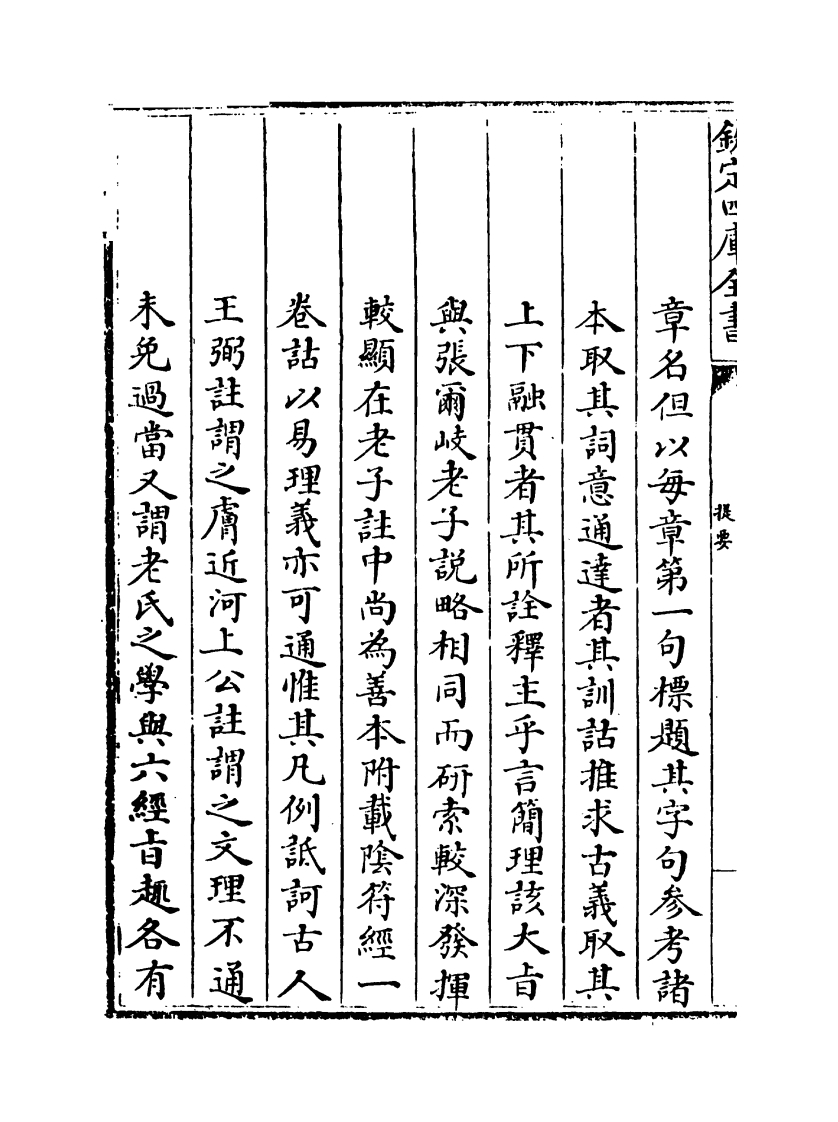 欽定四庫全書
提要
章名但以每章第一句標題其字句參考諸
本取其詞意通達者其訓詁推求古義取其
上下融貫者其所詮釋主乎言簡理該大㫖
與張爾岐老子説略相同而研索較深發揮
較顯在老子註中尚為善本附載陰符經一
卷詁以易理義亦可通惟其凡例詆訶古人
王弼註謂之膚近河上公註謂之文理不通
未免過當又謂老氏之學與六經㫖趣各有